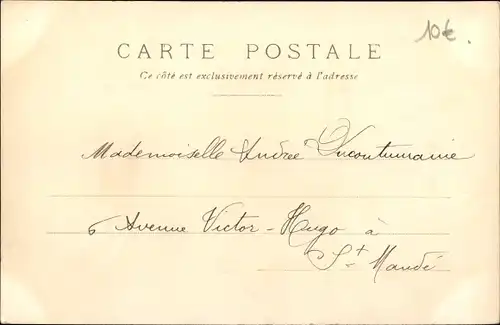 10€.
CARTE POSTALE
Ce côté est exclusivement réservé à l'adresse
Mademoiselle Andrée
6 Avenue Victor-Hugo à
St Mandé